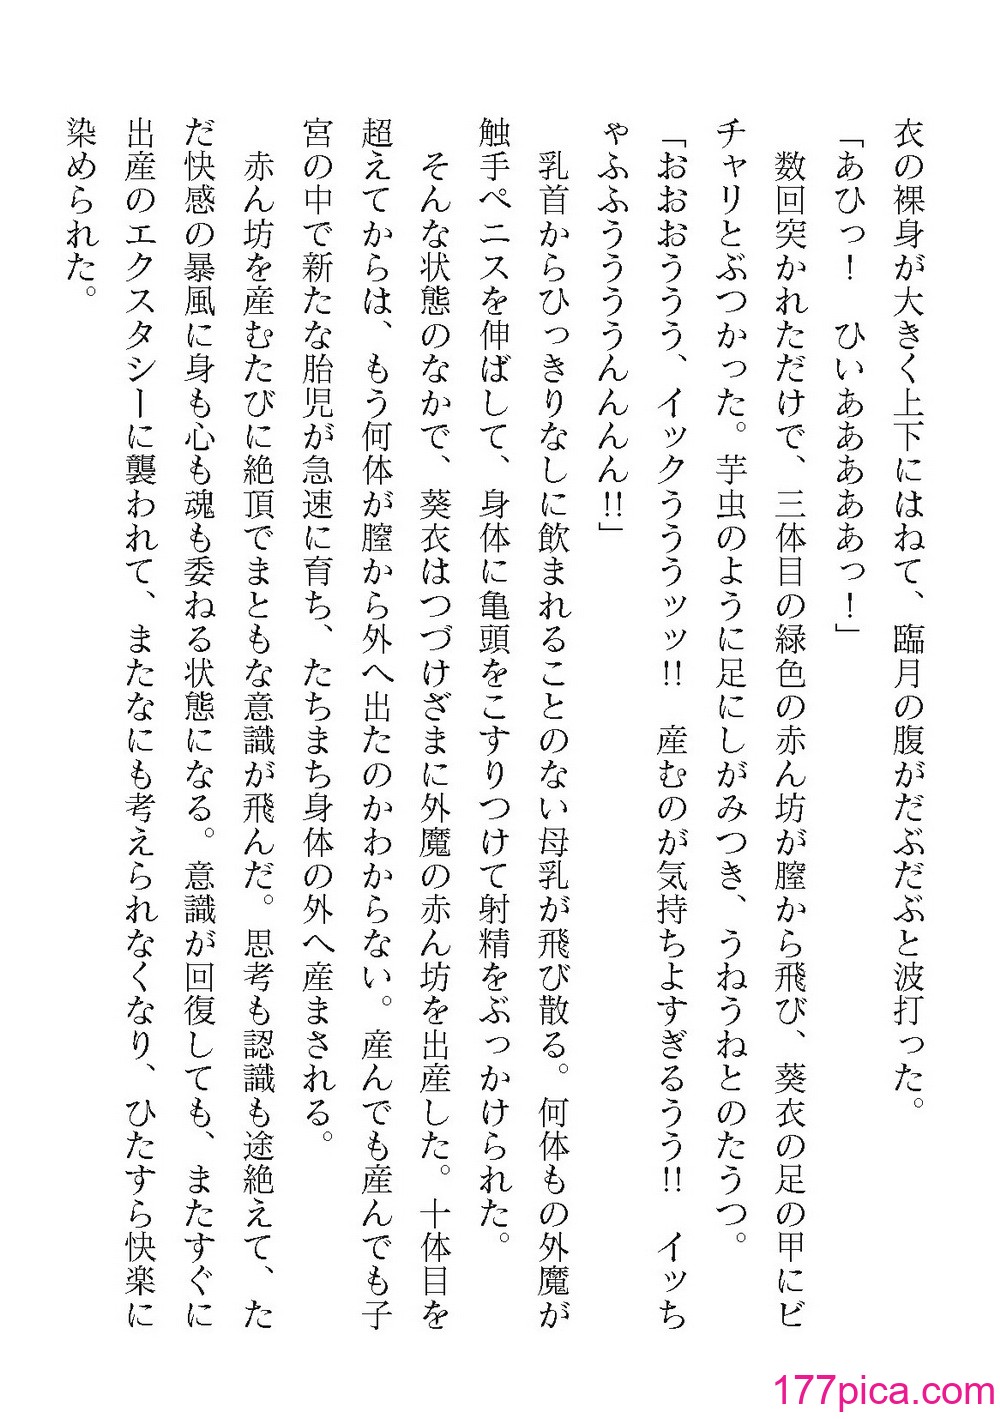 衣の裸身が大きく上下にはねて、臨月の腹がだぶだぶと波打った。
「あひっ！　ひいあああああっ！」
数回突かれただけで、三体目の緑色の赤ん坊が膣から飛び、葵衣の足の甲にビ
チャリとぶつかった。芋虫のように足にしがみつき、うねうねとのたうつ。
「おおおううう、イックうううッッ!!　産むのが気持ちよすぎるうう!!　イッち
ゃふふうううんんんん!!」
乳首からひっきりなしに飲まれることのない母乳が飛び散る。何体もの外魔が
触手ペニスを伸ばして、身体に亀頭をこすりつけて射精をぶっかけられた。
そんな状態のなかで、葵衣はつづけざまに外魔の赤ん坊を出産した。十体目を
超えてからは、もう何体が膣から外へ出たのかわからない。産んでも産んでも子
宮の中で新たな胎児が急速に育ち、たちまち身体の外へ産まされる。
赤ん坊を産むたびに絶頂でまともな意識が飛んだ。思考も認識も途絶えて、た
だ快感の暴風に身も心も魂も委ねる状態になる。意識が回復しても、またすぐに
出産のエクスタシーに襲われて、またなにも考えられなくなり、ひたすら快楽に
染められた。
177pica.com